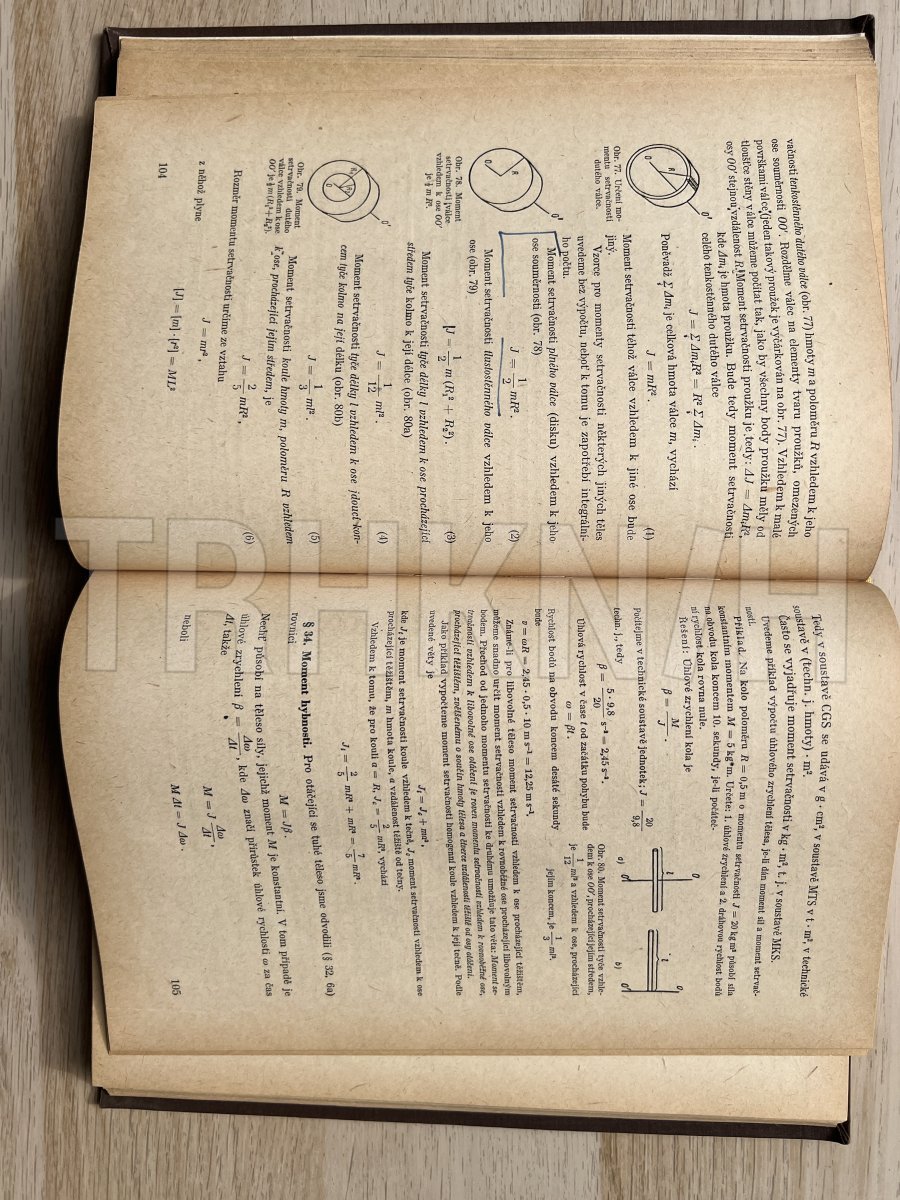 vačnosti tenkostěnného dutého válce (obr. 77) hmoty m a poloměru R vzhledem k jeho
ose souměrnosti OO′. Rozdělme válec na elementy tvaru proužků, omezených
površkami válce (jeden takový proužek je vyčárkován na obr. 77). Vzhledem k malé
tloušťce stěny válce můžeme počítat tak, jako by všechny body proužku měly od
osy OO′ stejnou vzdálenost R. Moment setrvačnosti proužku je tedy: ΔJ = ΔmᵢR²,
kde Δmᵢ je hmota proužku. Bude tedy moment setrvačnosti
celého tenkostěnného dutého válce
J = Σ ΔmᵢR² = R² Σ Δmᵢ .
Poněvadž Σ Δmᵢ je celková hmota válce m, vychází
J = mR² . (1)
Moment setrvačnosti téhož válce vzhledem k jiné ose bude
jiný.
Vzorce pro momenty setrvačnosti některých jiných těles
uvedeme bez výpočtu, neboť k tomu je zapotřebí integrální-
ho počtu.
Obr. 77. Určení mo-
mentu setrvačnosti
dutého válce.
Moment setrvačnosti plného válce (disku) vzhledem k jeho
ose souměrnosti (obr. 78)
J = 1/2 mR² . (2)
Moment setrvačnosti tlustostěnného válce vzhledem k jeho
ose (obr. 79)
J = 1/2 m (R₁² + R₂²) . (3)
Obr. 78. Moment
setrvačnosti válce
vzhledem k ose OO′
je ½ m R².
Moment setrvačnosti tyče délky l vzhledem k ose procházející
středem tyče kolmo k její délce (obr. 80a)
J = 1/12 ml² . (4)
Moment setrvačnosti tyče délky l vzhledem k ose jdoucí kon-
cem tyče kolmo na její délku (obr. 80b)
J = 1/3 ml² . (5)
Moment setrvačnosti koule hmoty m, poloměru R vzhledem
k ose, procházející jejím středem, je
J = 2/5 mR² , (6)
Obr. 79. Moment
setrvačnosti dutého
válce vzhledem k ose
OO′ je ½ m (R₁² + R₂²).
Rozměr momentu setrvačnosti určíme ze vztahu
J = mr² ,
z něhož plyne
[J] = [m] · [r²] = ML²
104
Tedy v soustavě CGS se udává v g · cm², v soustavě MTS v t · m², v technické
soustavě v (techn. j. hmoty) · m².
Často se vyjadřuje moment setrvačnosti v kg · m², t. j. v soustavě MKS.
Uvedeme příklad výpočtu úhlového zrychlení tělesa, je-li dán moment sil a moment setrvač-
nosti.
Příklad. Na kolo poloměru R = 0,5 m o momentu setrvačnosti J = 20 kg m² působí síla
konstantním momentem M = 5 kg*m. Určete: 1. úhlové zrychlení a 2. dráhovou rychlost bodů
na obvodu kola koncem 10. sekundy, je-li počáteč-
ní rychlost kola rovna nule.
Řešení: Úhlové zrychlení kola je
β = M/J .
Počítejme v technické soustavě jednotek; J = 20/9,8
techn. j., tedy
β = 5 · 9,8/20 s⁻² = 2,45 s⁻² ,
Úhlová rychlost v čase t od začátku pohybu bude
ω = βt .
a)
b)
Obr. 80. Moment setrvačnosti tyče vzhle-
dem k ose OO′, procházející jejím středem,
je 1/12 ml² a vzhledem k ose, procházející
jejím koncem, je 1/3 ml².
Rychlost bodů na obvodu koncem desáté sekundy
bude
v = ωR = 2,45 · 0,5 · 10 m s⁻¹ = 12,25 m s⁻¹,
Známe-li pro libovolné těleso moment setrvačnosti vzhledem k ose procházející těžištěm,
můžeme snadno určit moment setrvačnosti vzhledem k rovnoběžné ose procházející libovolným
bodem. Přechod od jednoho momentu setrvačnosti ke druhému umožňuje tato věta: Moment se-
trvačnosti vzhledem k libovolné ose otáčení je roven momentu setrvačnosti vzhledem k rovnoběžné ose,
procházející těžištěm, zvětšenému o součin hmoty tělesa a čtverce vzdálenosti těžiště od osy otáčení.
Jako příklad vypočteme moment setrvačnosti homogenní koule vzhledem k její tečně. Podle
uvedené věty je
J₁ = J₀ + ma²,
kde J₁ je moment setrvačnosti koule vzhledem k tečně, J₀ moment setrvačnosti vzhledem k ose
procházející těžištěm, m hmota koule, a vzdálenost těžiště od tečny.
Vzhledem k tomu, že pro kouli a = R, J₀ = 2/5 mR², vychází
J₁ = 2/5 mR² + mR² = 7/5 mR² .
§ 34. Moment hybnosti. Pro otáčející se tuhé těleso jsme odvodili (§ 32, 6a)
rovnici
M = Jβ .
Nechť působí na těleso síly, jejichž moment M je konstantní. V tom případě je
úhlové zrychlení β = Δω/Δt, kde Δω značí přírůstek úhlové rychlosti ω za čas
Δt, takže
M = J Δω/Δt ,
neboli
M Δt = J Δω .
105